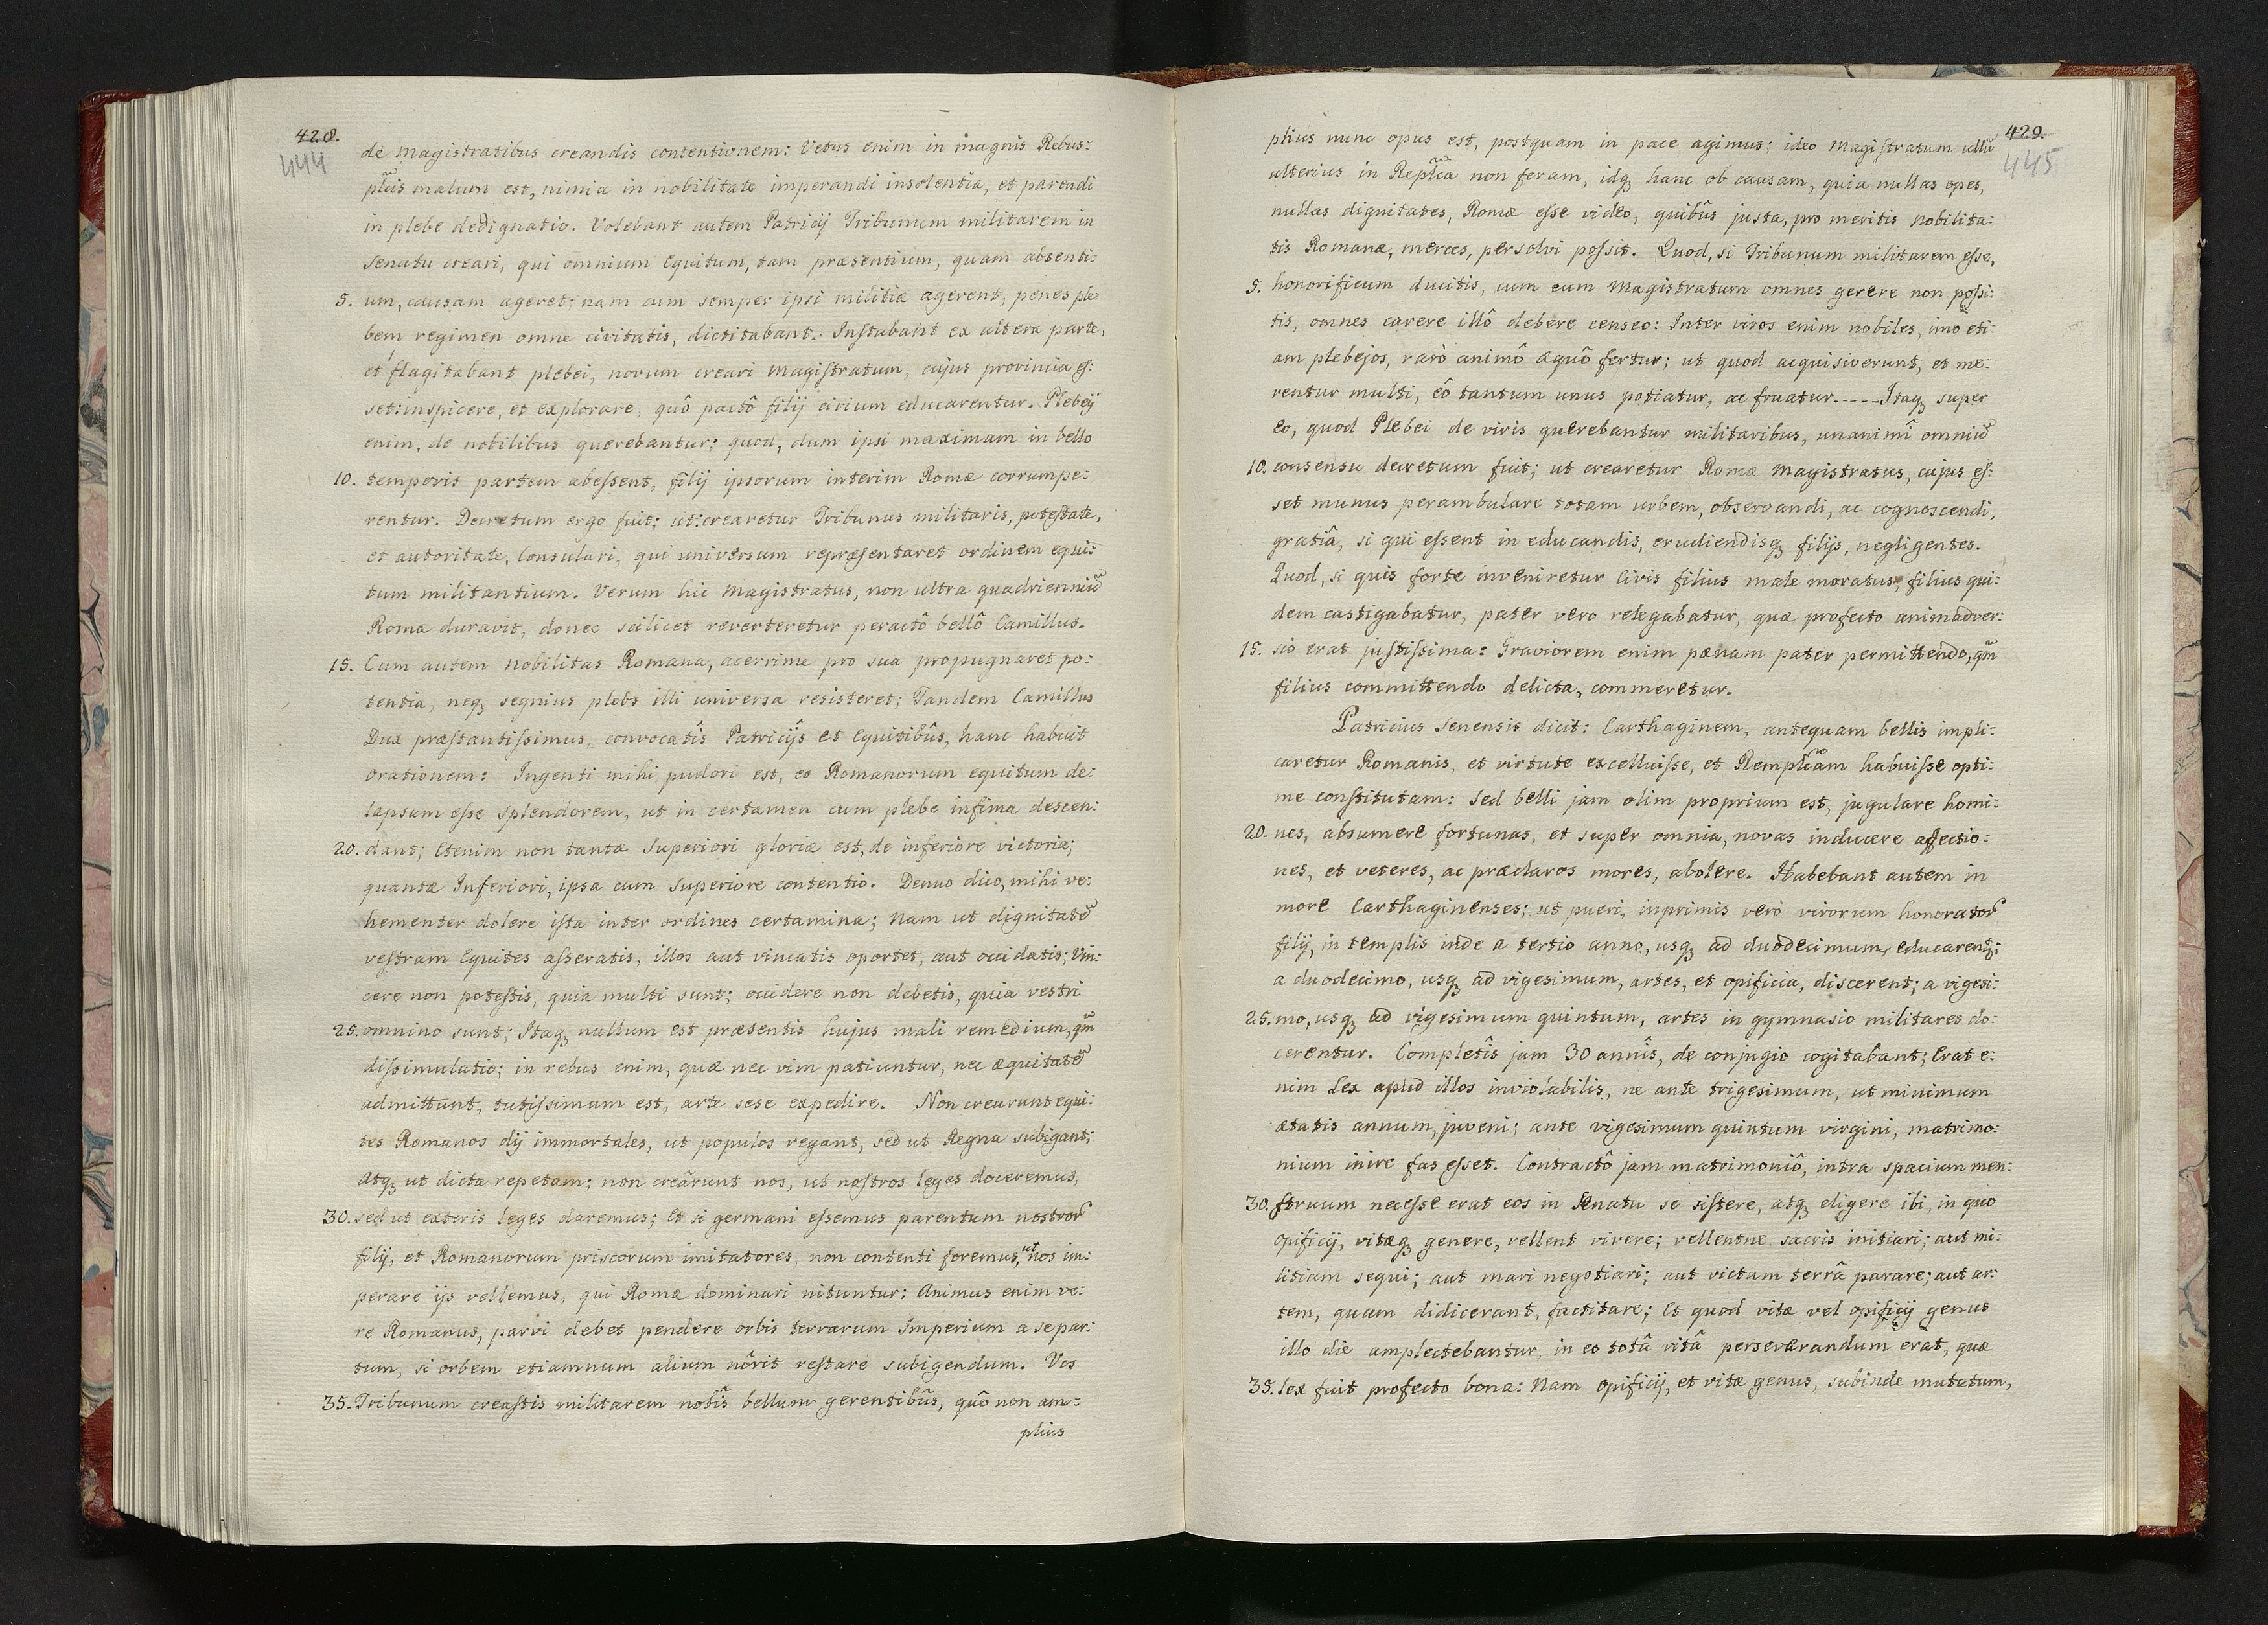 428.
444
de Magistratibus creandis contentionem: Vetus enim in magnis Rebus:
plĩcis malum est, nimia in nobilitate imperandi insolentia, et parendi
in plebe dedignatio. Volebant autem Patricij Tribunum militarem in
Senatu creari, qui omnium Equitum, tam præsentium, quam absenti:
5. um, causam ageret; nam cum semper ipsi militiæ agerent, penes ple:
bem regimen omne civitatis, dictitabant. Inſtabant ex altera parte,
et flagitabant plebei, novum creari Magiſtratum, cujus provincia eſ:
set: inspicere, et explorare, quô pactô filij civium educarentur. Plebeij
enim, de nobilibus querebantur; quod, dum ipsi maximam in bello
10. temporis partem abeſsent, filij ipsorum interim Romæ corrumpe:
rentur. Decretum ergo fuit; ut: crearetur Tribunus militaris, poteſtate,
et autoritate, Consulari, qui universum repræſentaret ordinem equi:
tum militantium. Verum hic Magistratus, non ultra quadrienniũ
Romæ duravit, donec scilicet reverteretur peractô bellô Camillus.
15. Cum autem Nobilitas Romana, acerrime pro sua propugnaret po:
tentia, neq́ segnius plebs illi universa resisteret; Tandem Camillus
Dux præſtantiſsimus, convocatîs Patricijs et Equitibûs, hanc habuit
orationem: Ingenti mihi pudori est, eo Romanorum equitum de:
lapsum eſse splendorem, ut in certamen cum plebe infima descen:
20. dant; Etenim non tantæ Superiori gloriæ est, de inferiore victoria;
quantæ Inferiori, ipsa cum Superiore contentio. Denuo dico, mihi ve:
hementer dolere iſta inter ordines certamina; Nam ut dignitatẽ
veſtram Equites aſseratis, illos aut vincatis oportet, aut occidatis; Vin:
cere non poteſtis, quia multi sunt; occidere non debetis, quia vestri
25. omnino sunt; Itaq́ nullum est præsentis hujus mali remedium, qm̃
diſsimulatio; in rebus enim, quæ nec vim patiuntur, nec æquitatẽ
admittunt, tutiſsimum est, arte sese expedire. Non crearunt equi:
tes Romanos dij immortales, ut populos regant, sed ut Regna subigant;
Atq́ ut dicta repetam; non creârunt nos, ut noſtros leges doceremus,
30. sed ut exteris leges daremus; Et si germani eſsemus parentum nostror̃
filij, et Romanorum priscorum imitatores, non contenti foremus, ut nos im:
perare ijs vellemus, qui Romæ dominari nituntur: Animus enim ve:
re Romanus, parvi debet pendere orbis terrarum Imperium a se par:
tum, si orbem etiamnum alium nôrit reſtare subigendum. Vos
35. Tribunum creaſtis militarem nobîs bellum gerentibûs, quô non am:
plius
429.
445
plius nunc opus est, postquam in pace agimus; ideo Magiſtratum ullũ
ulterius in Replĩca non feram, idq́ hanc ob causam, quia nullas opes,
nullas dignitates, Romæ eſse video, quibûs justa, pro meritis Nobilita:
tis Romanæ, merces, persolvi poſsit. Quod, si Tribunum militarem eſse,
5. honorificum ducitis, cum eum Magistratum omnes gerere non poſsi:
tis, omnes carere illô debere censeo: Inter viros enim nobiles, imo eti:
am plebejos, rarò animô æquô fertur; ut quod acquisiverunt, et me:
rentur multi, eô tantum unus potiatur, ac fruatur.-----Itaq́ super
eo, quod Plebei de viris querebantur militaribus, unanimî omniũ
10. consensu decretum fuit; ut crearetur Romæ Magistratus, cujus eſ:
set munus perambulare totam urbem, observandi, ac cognoscendi,
gratiâ, si qui eſsent in educandis, erudiendisq́ filijs, negligentes.
Quod, si quis forte inveniretur Civis filius male moratus, filius qui:
dem castigabatur, pater vero relegabatur, quæ profecto animadver:
15. sio erat juſtiſsima: Graviorem enim pænam pater permittendo, qm̃
filius committendo delicta, commeretur.
Patricius Senensis dicit: Carthaginem, antequam bellis impli:
caretur Romanis, et virtute excelluiſse, et Remplĩcam habuiſse opti:
me conſtitutam: Sed belli jam olim proprium est, jugulare homi:
20. nes, absumere fortunas, et super omnia, novas inducere affectio:
nes, et veteres, ac præclaros mores, abolere. Habebant autem in
more Carthaginenses; ut pueri, inprimis verò virorum honorator̃
filij, in templis inde a tertio anno, usq́ ad duodecimum, educarent̃;
a duodecimo, usq́ ad vigesimum, artes, et opificia, discerent; a vigesi:
25. mo, usq́ ad vigesimum quintum, artes in gymnasio militares do:
cerentur. Completîs jam 30 annîs, de conjugio cogitabant; Erat e:
nim Lex apud illos inviolabilis, ne ante trigesimum, ut minimum
ætatis annum, juveni; ante vigesimum quintum virgini, matrimo:
nium inire fas eſset. Contractô jam matrimoniô, intra spacium men:
30. ſtruum neceſse erat eos in Senatu se siſtere, atq́ eligere ibi, in quo
opificij, vitæq́ genere, vellent vivere; vellentne sacris initiari; aut mi:
litiam sequi; aut mari negotiari; aut victum terrâ parare; aut ar:
tem, quam didicerant, factitare; Et quod vitæ vel opificij genus
illo die amplectebantur, in eo totâ vitâ perseverandum erat, quæ
35. Lex fuit profecto bona: Nam opificij, et vitæ genus, subinde mutatum,